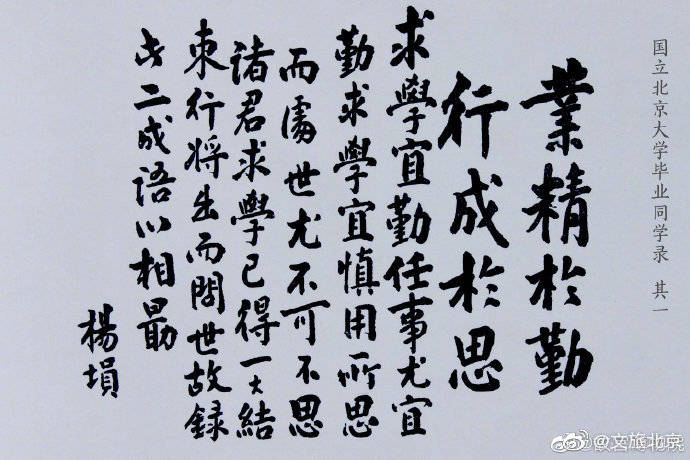 国立北京大学毕业同学录 其一
業精於勤
行成於思
求學宜勤任事尤宜
勤求學宜慎用所思
而處世尤不可不思
諸君求學已得一大結
束行将出而閱世故録
此二成語以相勗
楊塤
@文旅北京